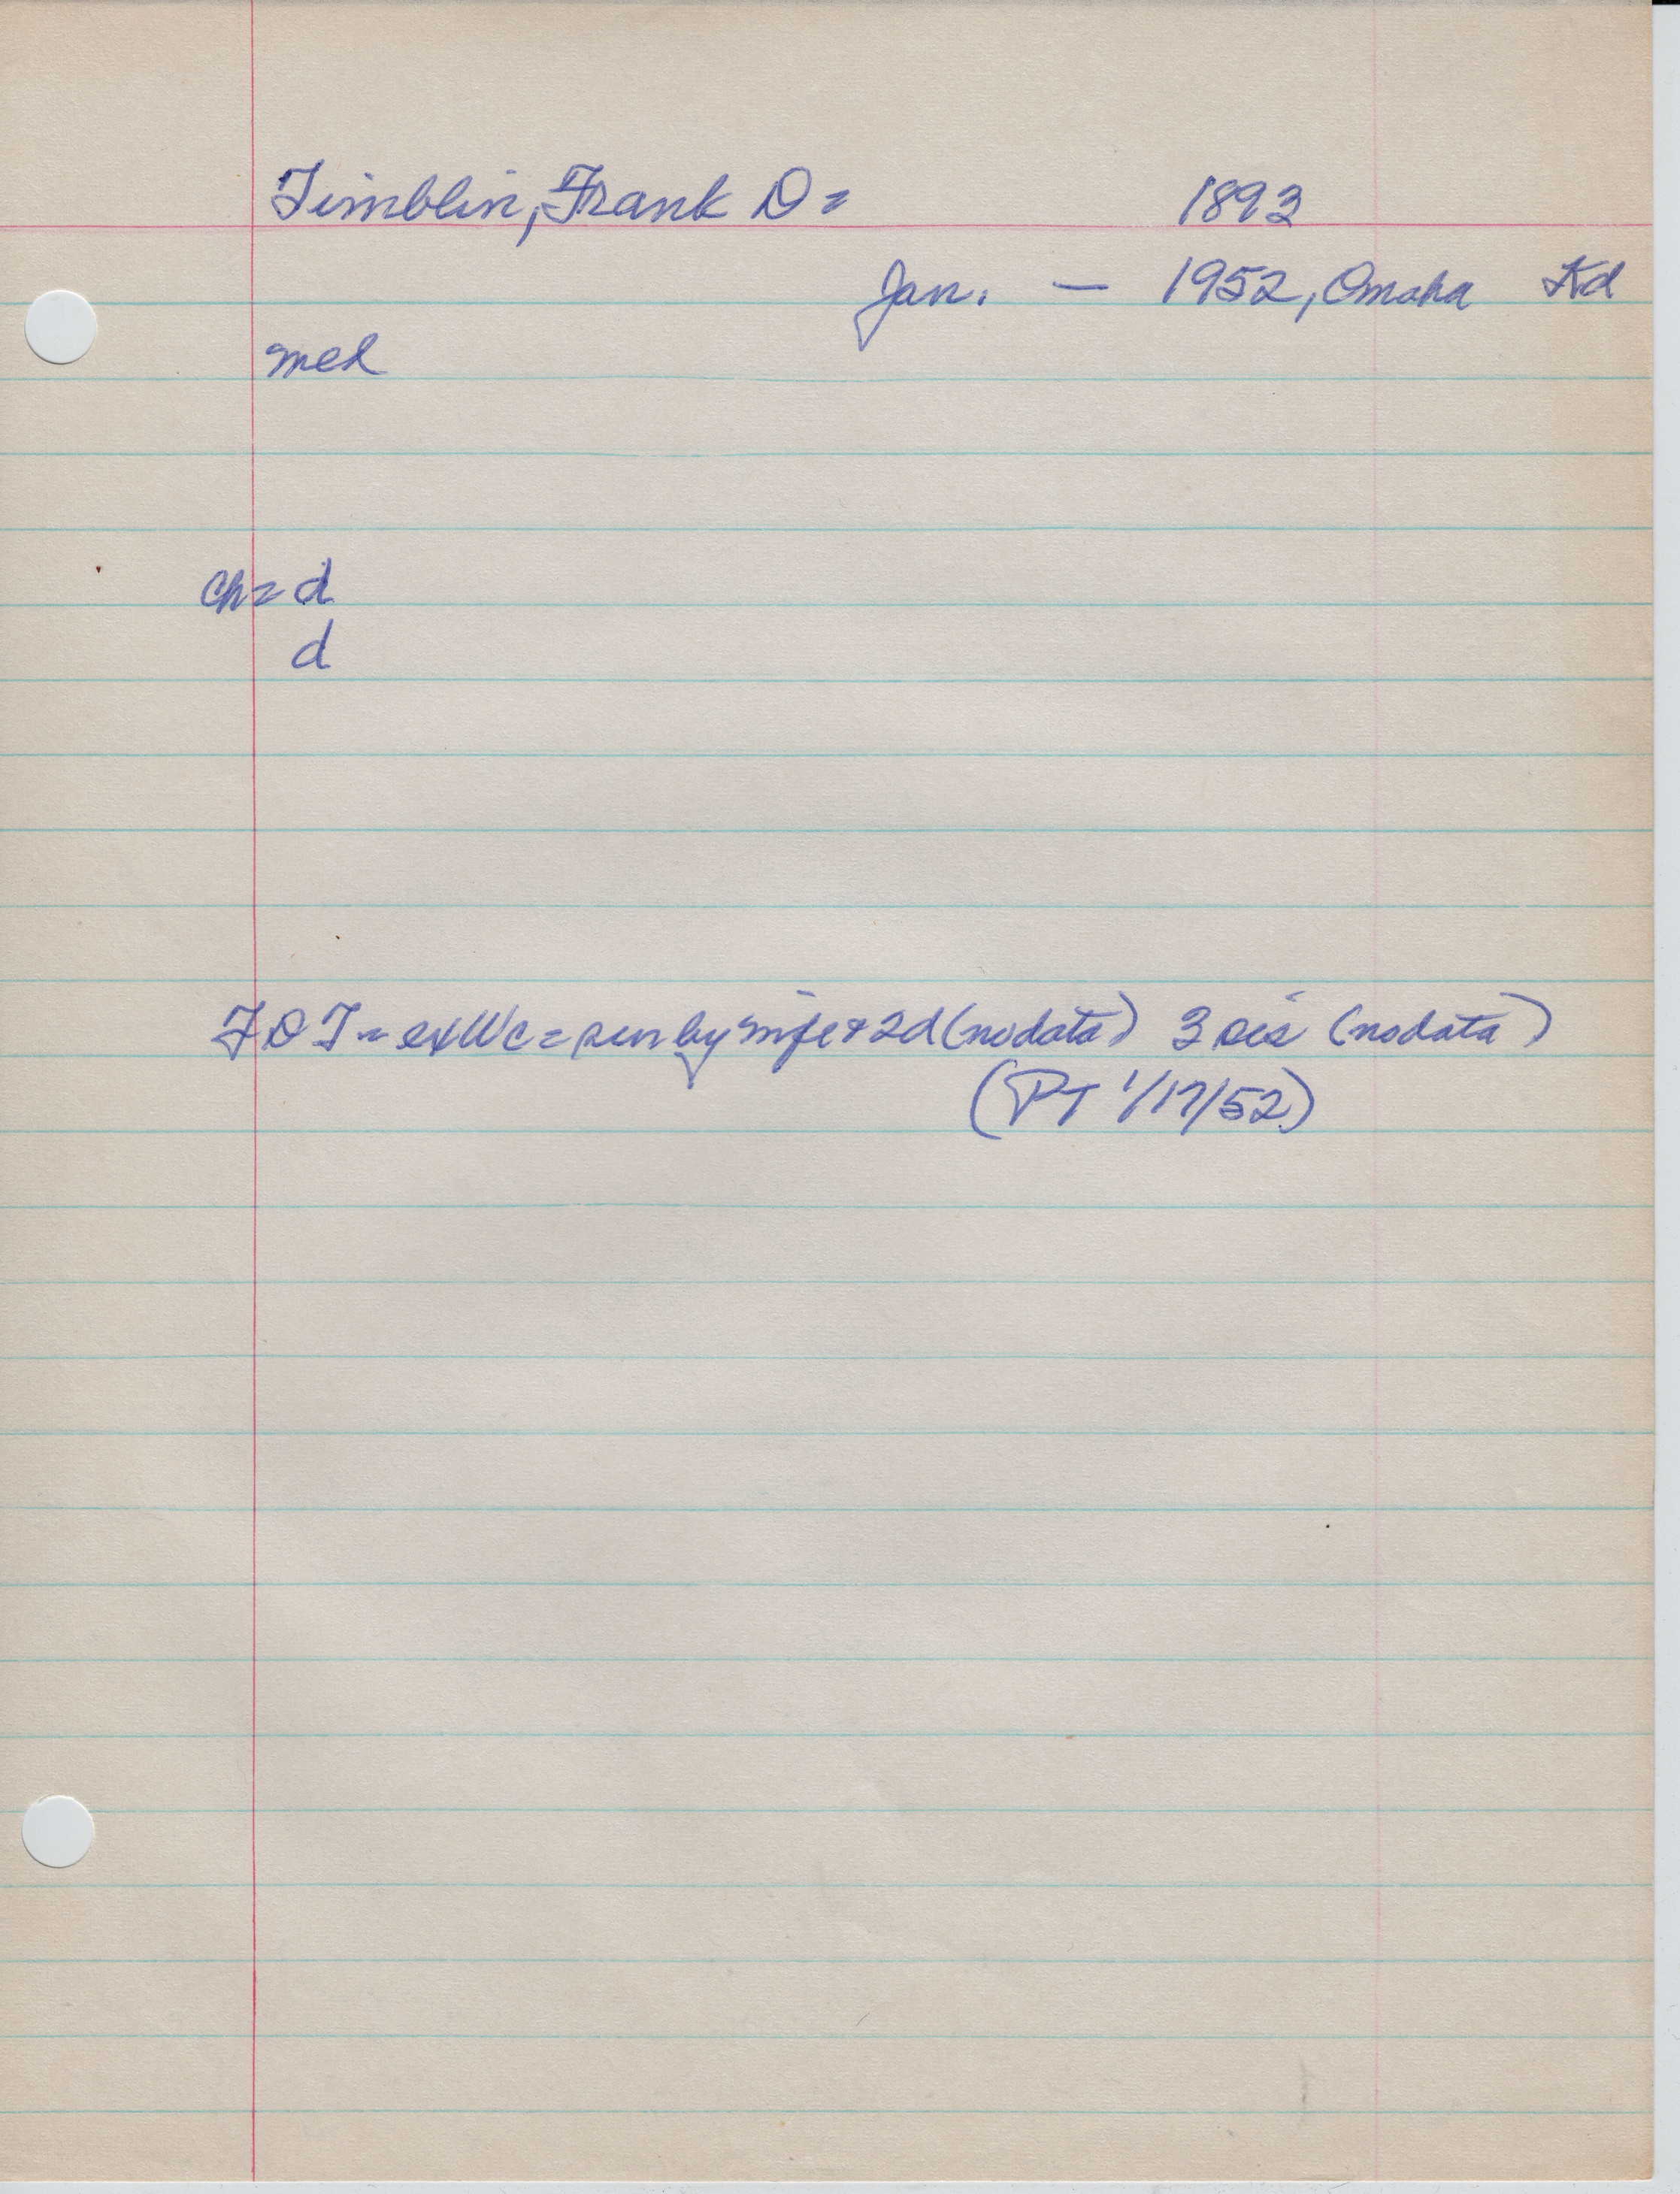 Timblin, Frank D = 1893
Jan. — 1952, Omaha Kd
med
ch = d
d
FDT = exWc = sur by wife & 2d (no data) 3 sis (no data)
(PT 1/17/52)